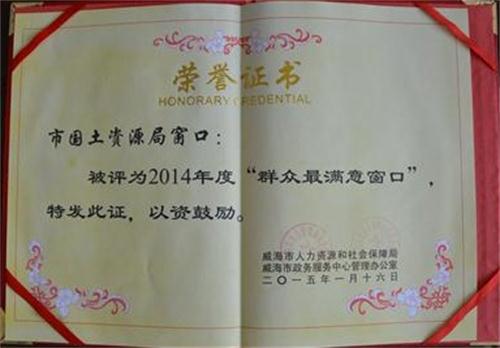 荣誉证书
HONORARY CREDENTIAL
市国土资源局窗口：
被评为2014年度“群众最满意窗口”，
特发此证，以资鼓励。
威海市人力资源和社会保障局
威海市政务服务中心管理办公室
二〇一五年一月十六日